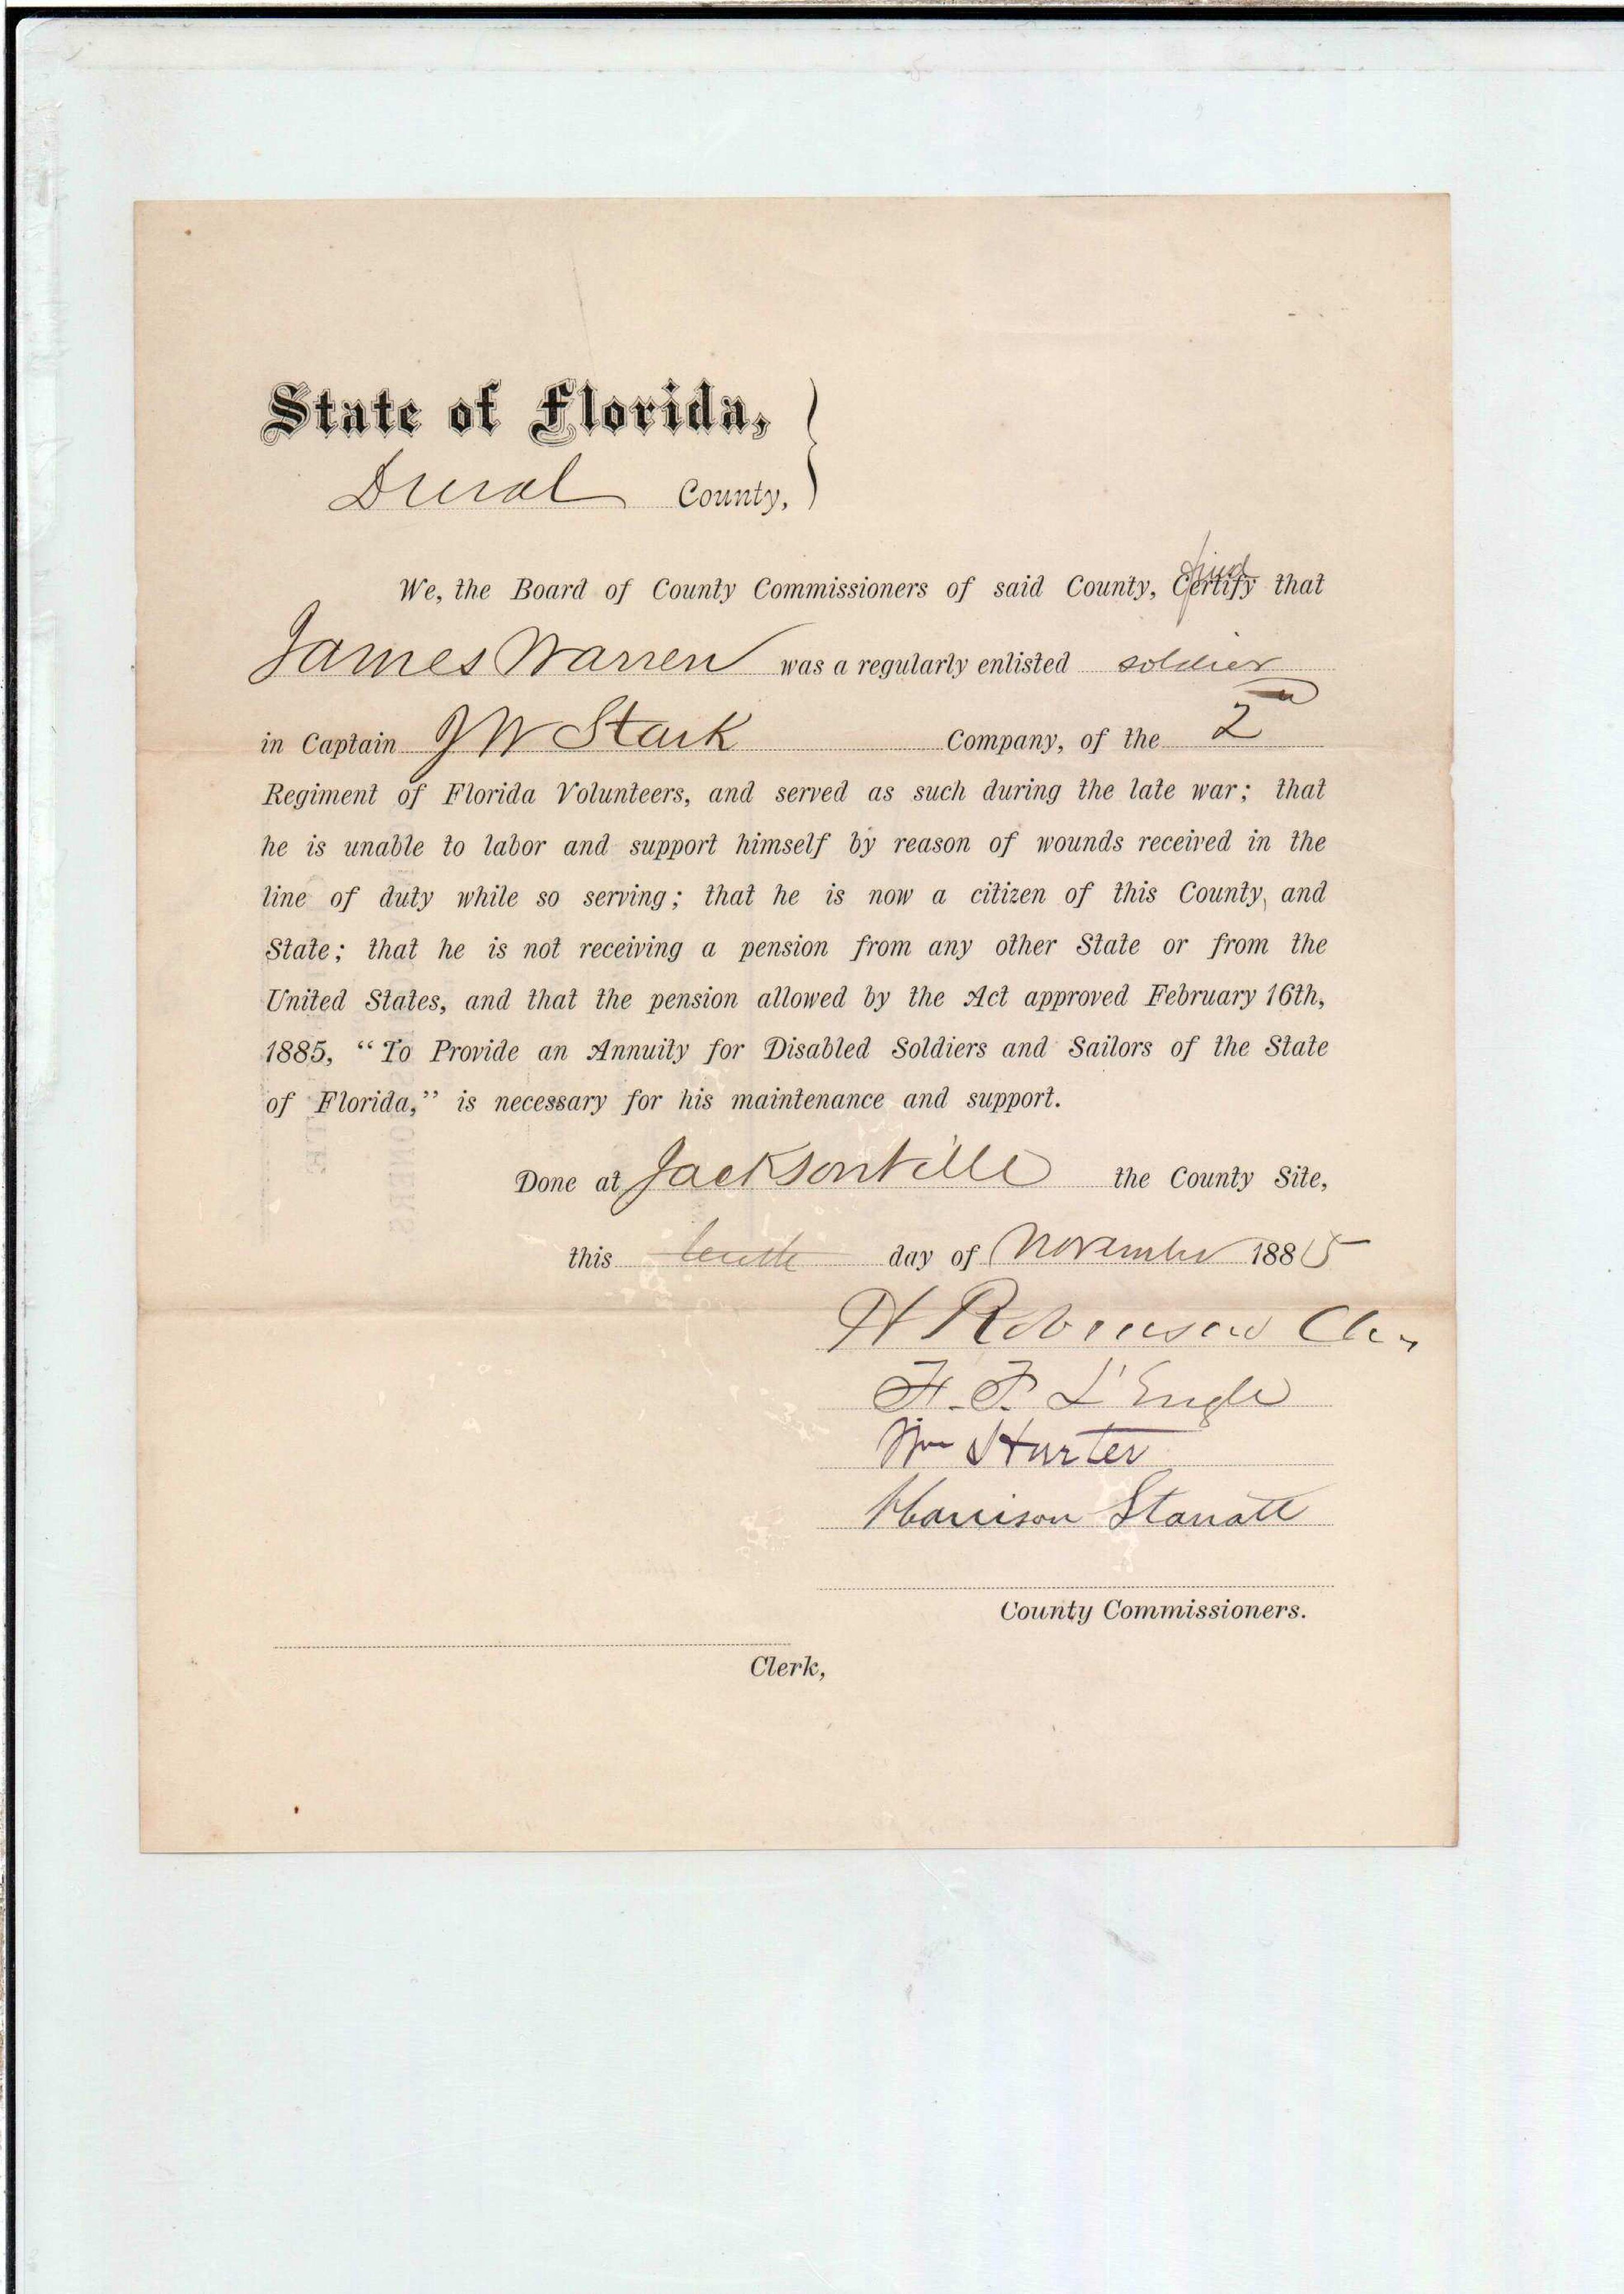 State of Florida,
Duval County,
find
We, the Board of County Commissioners of said County, Certify that
James Warren was a regularly enlisted soldier
in Captain J W Stark Company, of the 2
Regiment of Florida Volunteers, and served as such during the late war; that
he is unable to labor and support himself by reason of wounds received in the
line of duty while so serving; that he is now a citizen of this County, and
State; that he is not receiving a pension from any other State or from the
United States, and that the pension allowed by the Act approved February 16th,
1885, “To Provide an Annuity for Disabled Soldiers and Sailors of the State
of Florida,” is necessary for his maintenance and support.
Done at Jacksonville the County Site,
this tenth day of November 1885
H Robinson Ch.
F. F. L'Engle
Wm Hurter
Harrison Starratt
County Commissioners.
Clerk,